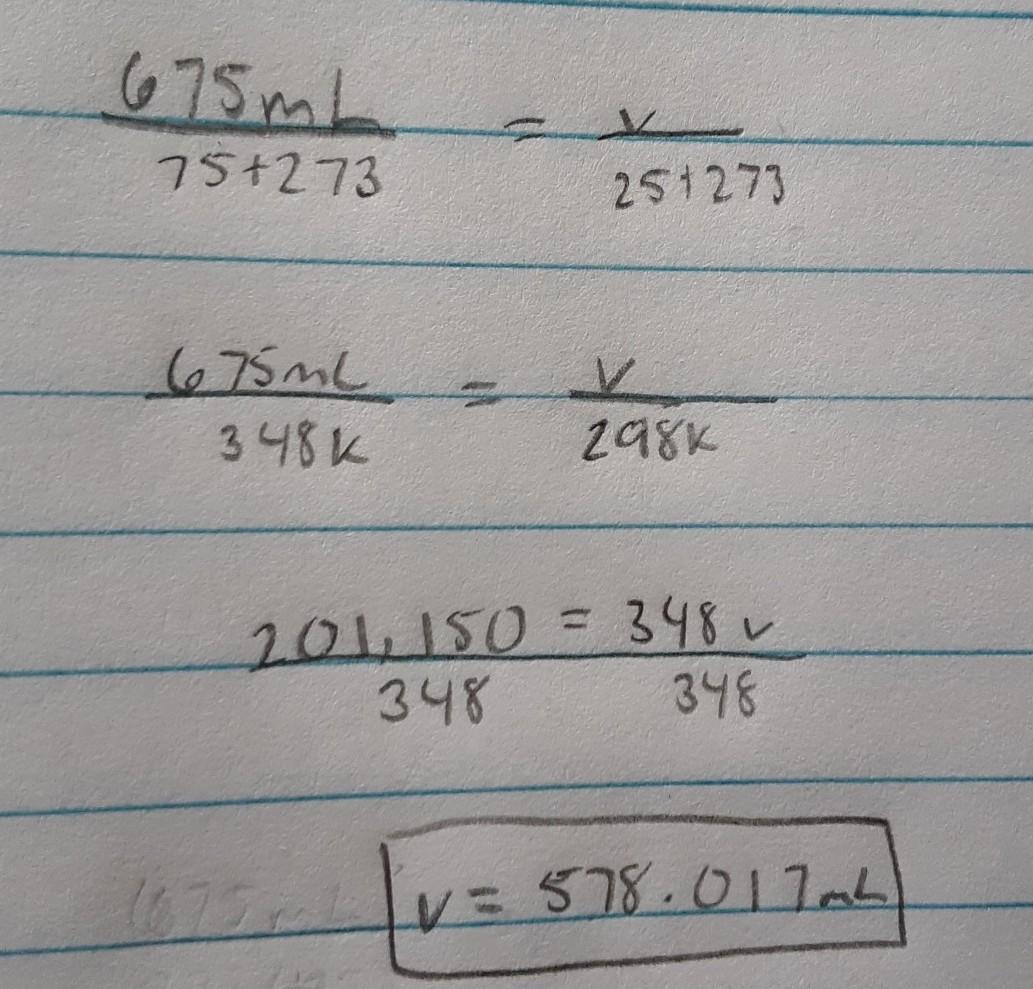 675mL = v
75+273 25+273
675mL = v
348K 298K
201,150 = 348v
348 348
v = 578.017mL
675mL